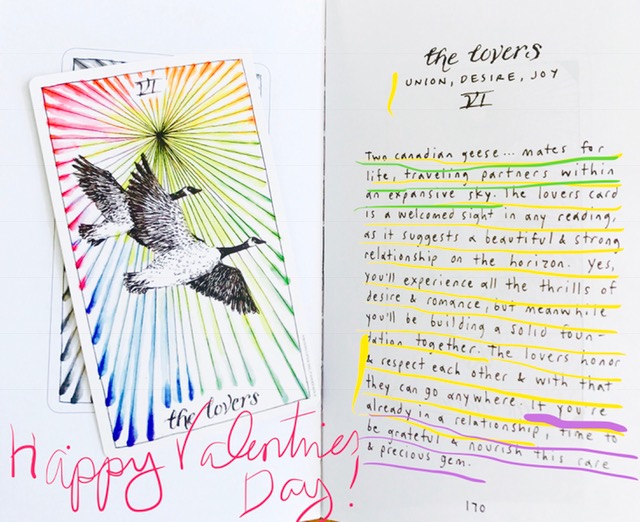 VI
the lovers
Happy Valentines
Day!
the lovers
UNION, DESIRE, JOY
VI
Two canadian geese... mates for
life, traveling partners within
an expansive sky. The lovers card
is a welcomed sight in any reading,
as it suggests a beautiful & strong
relationship on the horizon. Yes,
you'll experience all the thrills of
desire & romance, but meanwhile
you'll be building a solid foun-
dation together. The lovers honor
& respect each other & with that
they can go anywhere. If you're
already in a relationship, time to
be grateful & nourish this rare
& precious gem.
170